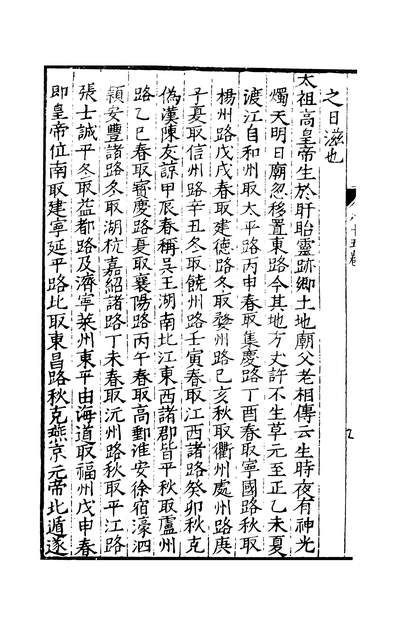 之日滋也
太祖高皇帝生於盱眙靈跡鄉土地廟父老相傳云生時夜有神光
燭天明日廟忽移置東路今其地方丈許不生草元至正乙未夏
渡江自和州取太平路丙申春取集慶路丁酉春取寧國路秋取
楊州路戊戌春取建德路冬取婺州路己亥秋取衢州處州路庚
子夏取信州路辛丑冬取饒州路壬寅春取江西諸路癸卯秋克
偽漢陳友諒甲辰春稱吳王湖南北江東西諸郡皆平秋取廬州
路乙巳春取寳慶路夏取襄陽路丙午春取高郵淮安徐宿濠泗
潁安豐諸路冬取湖杭嘉紹諸路丁未春取沅州路秋取平江路
張士誠平冬取益都路及濟寧萊州東平由海道取福州戊申春
即皇帝位南取建寧延平路北取東昌路秋克燕京元帝北遁遂